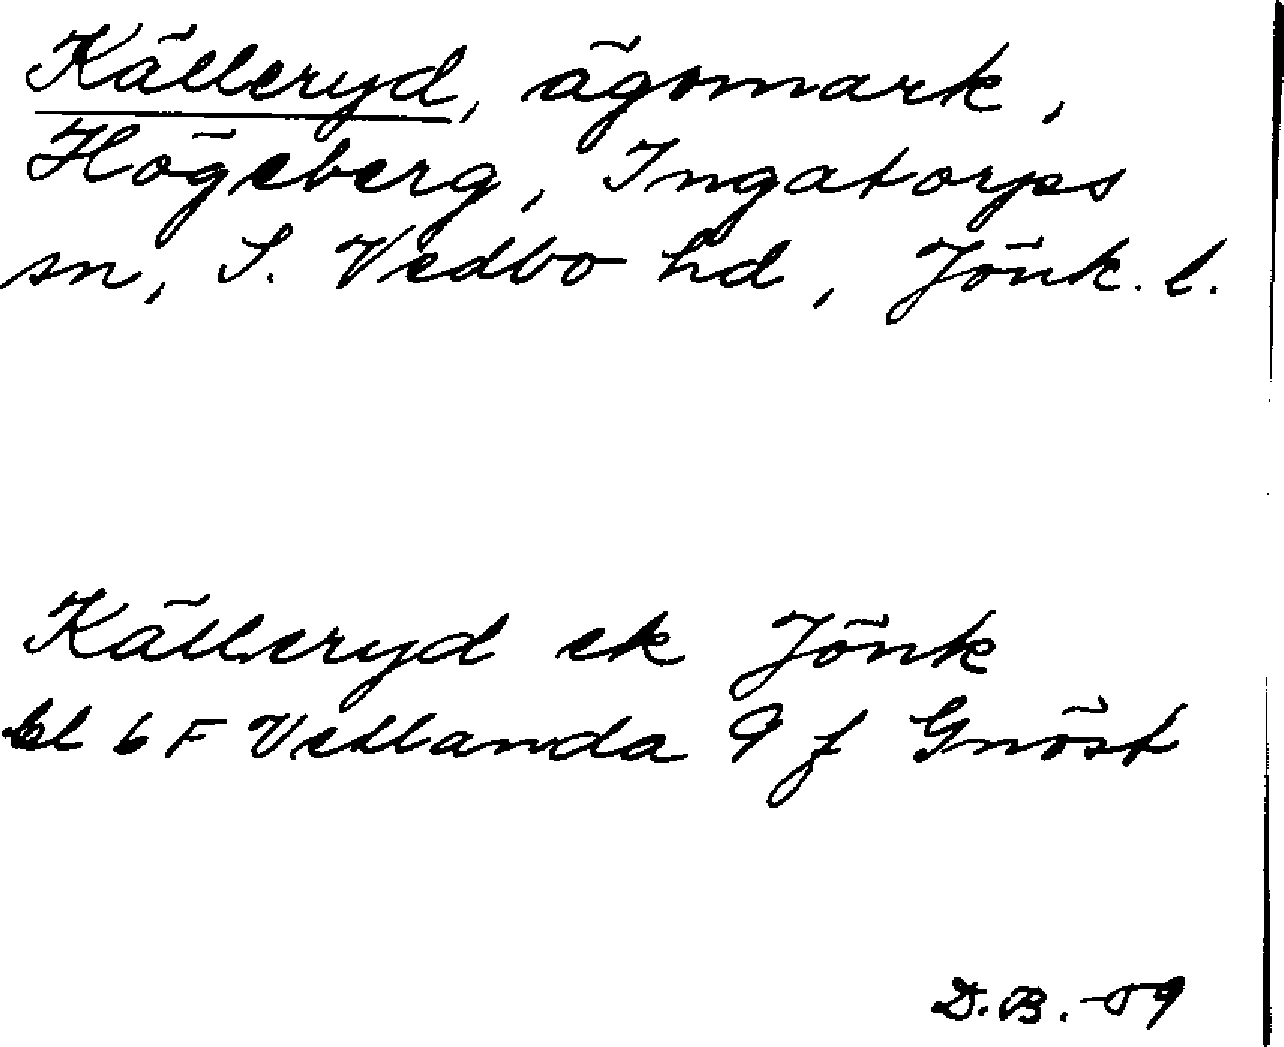 Källeryd, ägomark,
Högeberg, Ingatorps
sn, S. Vedbo hd, Jönk. l.
Källeryd ek Jönk
bl 6 F Vetlanda 9 f Gnöst
D.B. -59